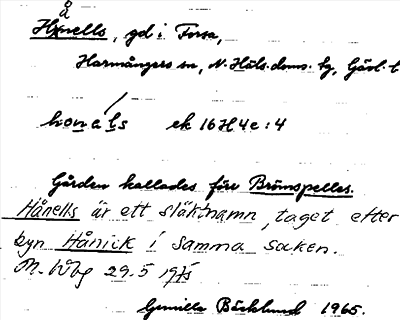 Hånells, gd i Forsa,
Harmångers sn, N. Häls. doms. tg, Gävl. l
honels ek 16H4e:4
Gården kallades förr Brönspelles.
Hånells är ett släktnamn, taget efter
byn Hånick i samma socken.
M. Wbg 29.5 1975
Gunilla Bäcklund 1965.